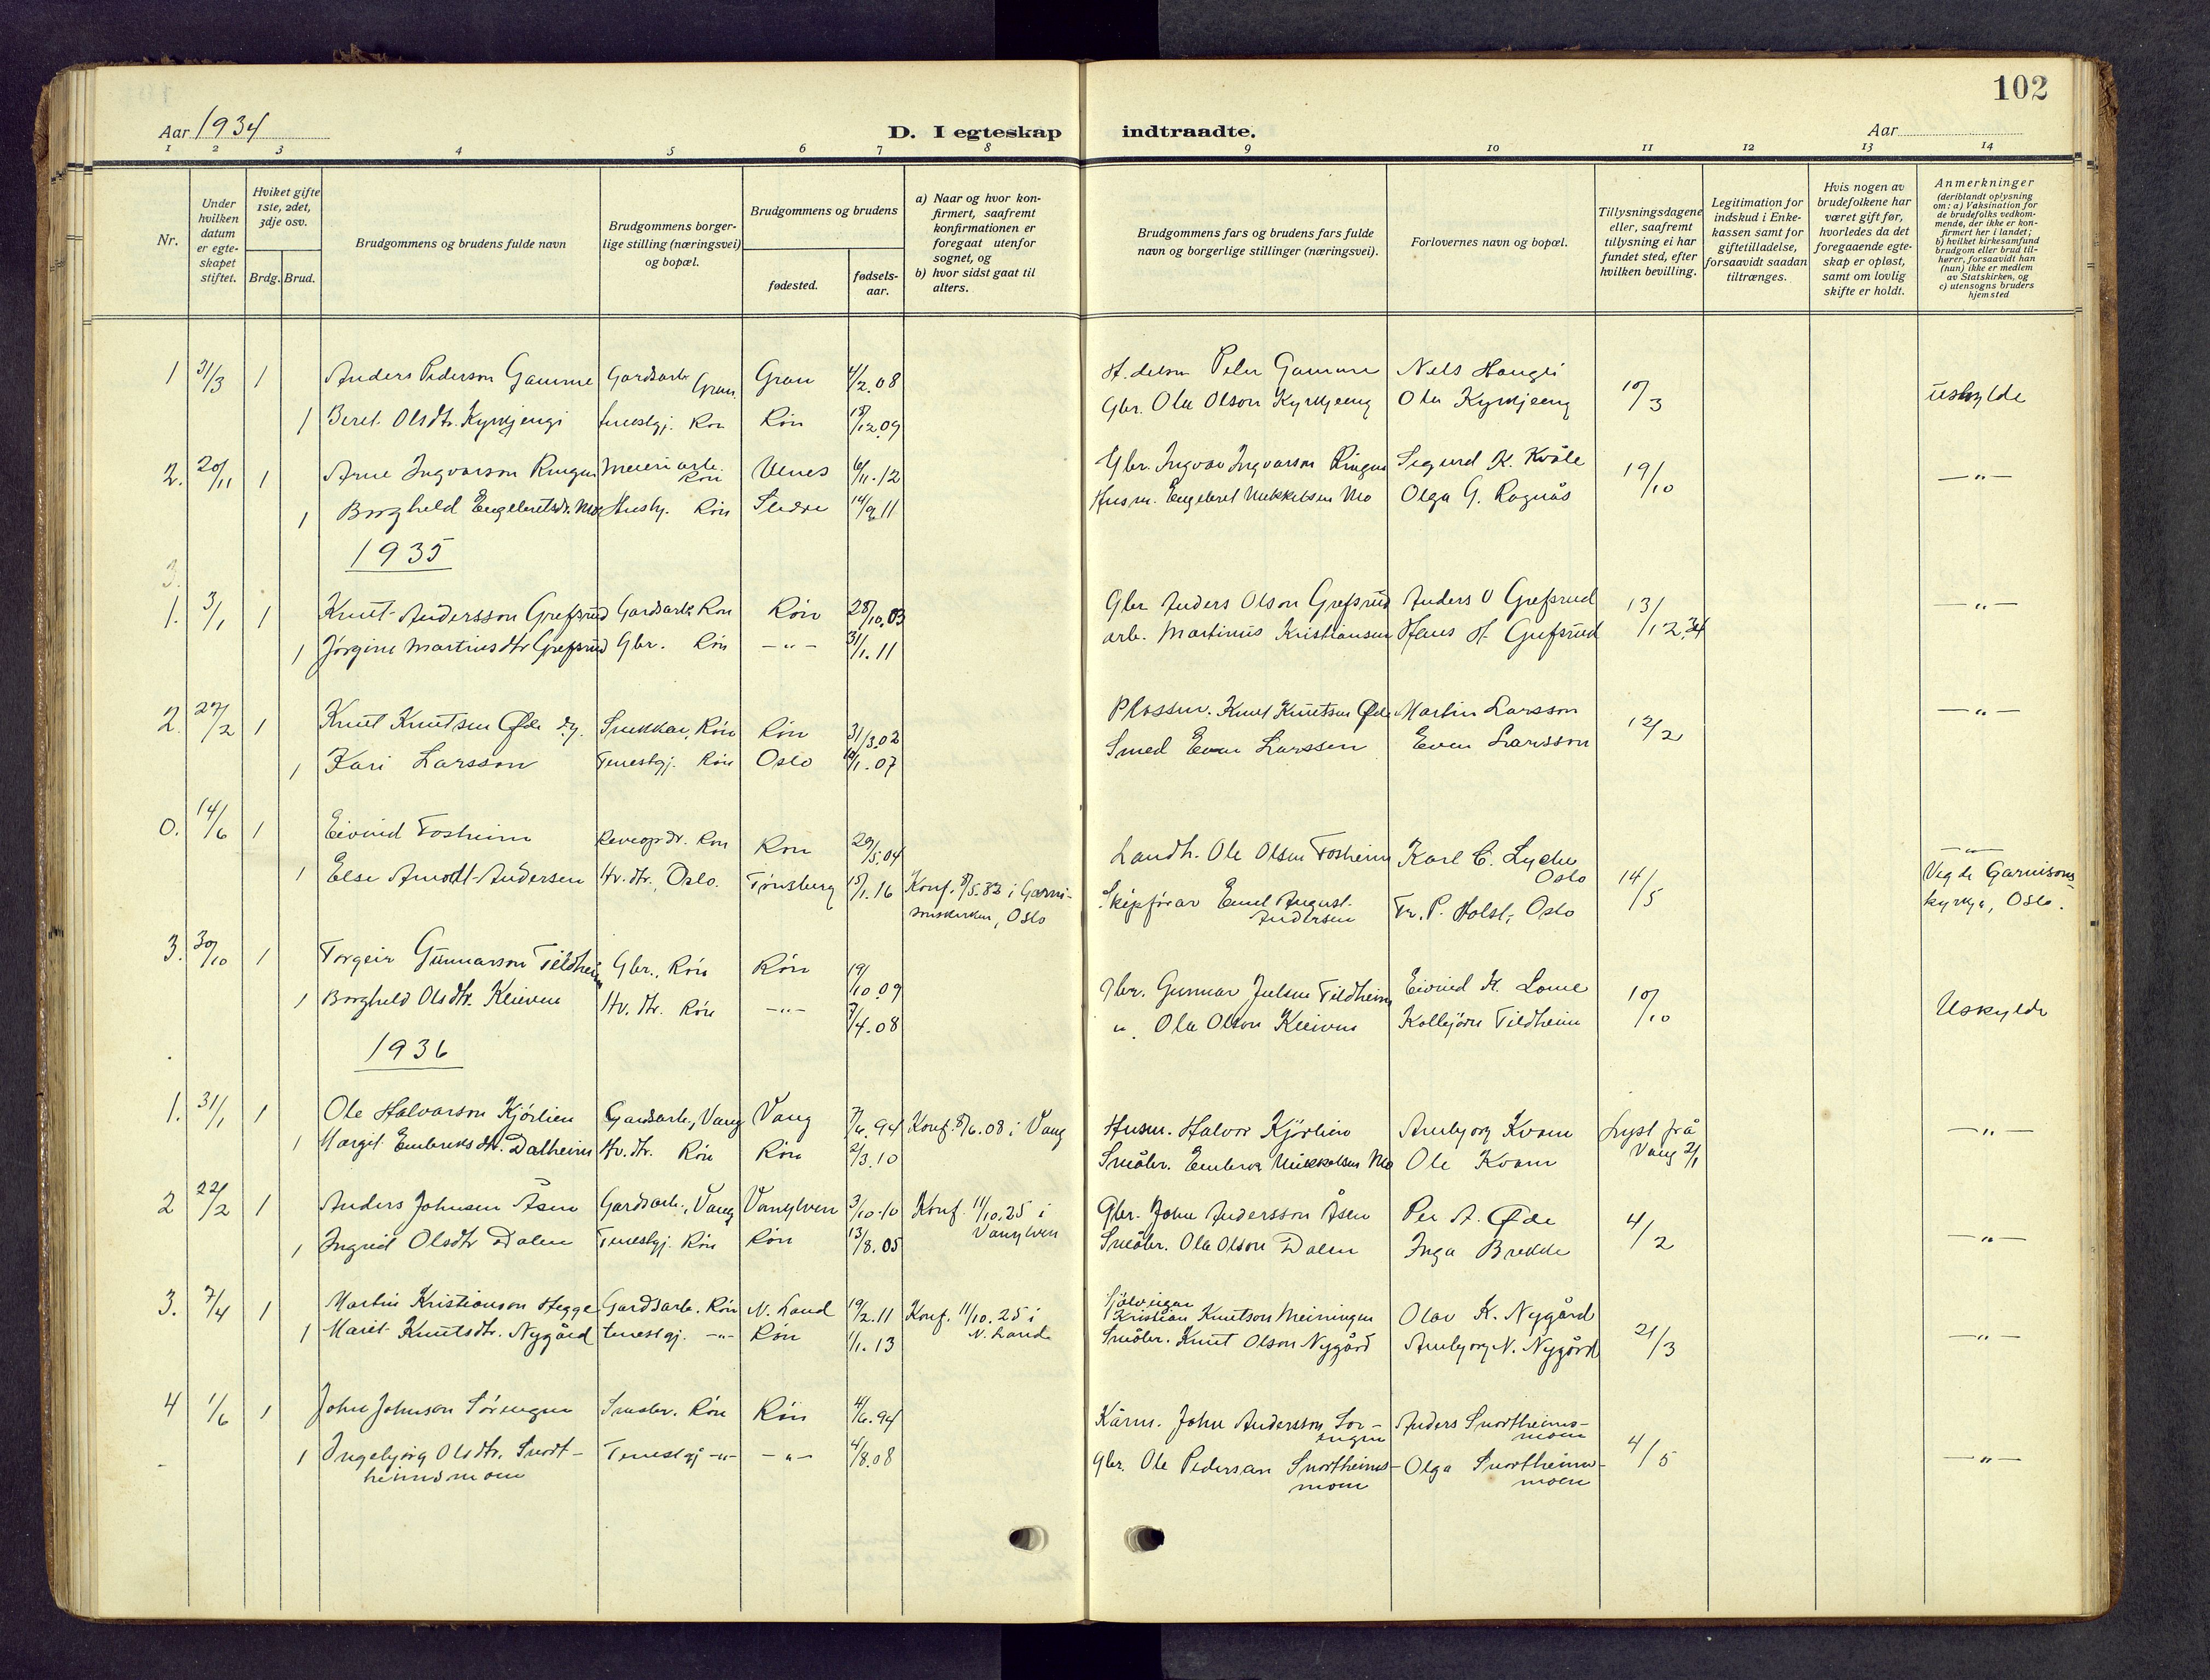 102
Aar 1934
D. I egteskap indtraadte.
Aar
1 2 3 4 5 6 7 8 9 10 11 12 13 14
Nr.
Under hvilken datum er egte- skapet stiftet.
Hviket gifte 1ste, 2det, 3dje osv.
Brdg. Brud.
Brudgommens og brudens fulde navn
Brudgommens borger- lige stilling (næringsvei) og bopæl.
Brudgommens og brudens
fødested.
fødsels- aar.
a) Naar og hvor kon- firmert, saafremt konfirmationen er foregaat utenfor sognet, og
b) hvor sidst gaat til alters.
Brudgommens fars og brudens fars fulde navn og borgerlige stillinger (næringsvei).
Forlovernes navn og bopæl.
Tillysningsdagene eller, saafremt tillysning ei har fundet sted, efter hvilken bevilling.
Legitimation for indskud i Enke- kassen samt for giftetilladelse, forsaavidt saadan tiltrænges.
Hvis nogen av brudefolkene har været gift før, hvorledes da det foregaaende egte- skap er opløst, samt om lovlig skifte er holdt.
Anmerkninger (deriblandt oplysning om: a) Vaksination for de brudefolks vedkom- mende, der ikke er kon- firmert her i landet; b) hvilket kirkesamfund brudgom eller brud til- hører, forsaavidt han (hun) ikke er medlem av Statskirken, og c) utensogns bruders hjemsted
1 31/3 1 Anders Pederson Gamme Gardsarb. Gran Gran 4/2.08 Peder Gamme Nels Haugli 10/3 uskylde
1 Beret Olsdtr. Kyrkjeng tenestgj. Røn Røn 12.09 Gbr. Ola Olson Kyrkjeeng Ola Kyrkjeeng
2. 20/11 1 Arne Ingvarson Ringen Meieriarb. Røn Ulnes 6/11.12 Gbr. Ingvar Ingvarson Ringen Sigurd K. Kvåle 19/10 — " —
1 Borghild Engebretsdr. Mo Hush. Røn Slidre 14/9 11 Husm. Engebret Mikkelsen Mo Olga G. Rognås
1935
3.
1. 3/1 1 Knut Andersson Grefsrud Gardsarb. Røn Røn 28/10.03 Gbr Anders Olson Grefsrud Anders O Grefsrud 13/12.34 — " —
1 Jørgine Martinsdtr Grefsrud Gbr. Røn — " — 31/1.11 arb. Martinus Kristiansen Hans H. Grefsrud
2. 27/2 1 Knut Knutsen Øde d.y. Snekkar, Røn Røn 31/3.02 Plassm. Knut Knutsen Øde Martin Larsson 12/2 — " —
1 Kari Larsson Tenestgj. Røn Oslo 1.07 Smed Even Larssen Even Larsson
0. 14/6 1 Eivind Fosheim Reveoppdr. Røn Røn 29/5.04 Landh. Ole Olsen Fosheim Karl C. Lyche Oslo 14/5 — " —
1 Else Arnodt-Andersen Hv.dtr. Oslo. Tønsberg 15/1.16 Konf. 8/5.32 i Garni- sonskirken, Oslo Skipførar Emil August Andersen Fr. P. Holst, Oslo Vigde Garnisons- kyrkja, Oslo.
3. 30/10 1 Torgeir Gunnarson Tildheim Gbr., Røn Røn 19/10.09 Gbr. Gunnar Julsen Tildheim Eivind H. Lome 10/10 Uskylde
1 Borghild Olsdtr. Kleiven Hv. dtr. Røn — " — 7/4.08 " Ola Olson Kleiven Kolbjørn Tildheim
1936
1. 31/1 1 Ole Halvarson Kjørlien Gardsarb., Vang Vang 7/6.94 Konf. 8/6.08 i Vang Husm. Halvor Kjørlien Ambjørg Kvam Lyst frå Vang 2/1 — " —
1 Margit Embriksdtr. Dalheim Hv.dtr. Røn Røn 2/3.10 Småbr. Embrik Mikkelsen Mo Ole Kvam
2 22/2 1 Anders Johnsen Åsen Gardsarb., Vang Vanylven 3/10.10 Konf. 11/10.25 i Vanylven Gbr. John Andersson Åsen Per A. Øde 4/2 — " —
1 Ingrid Olsdtr Dalen Tenestgj. Røn Røn 13/8.05 Småbr. Ola Olson Dalen Inga Brekke
3. 7/4 1 Martin Kristianson Hegge Gardsarb. Røn N. Land 19/2.11 Konf. 11/10.25 i N. Land Sjølveigar Kristian Knutson Meiningen Olav K. Nygård 21/3 — " —
1 Marit Knutsdtr. Nygård tenestgj. — " — Røn 1/1.13 Småbr. Knut Olson Nygård Ambjørg N. Nygård
4 1/6 1 John Johnson Sørengen Småbr. Røn Røn 4/6.94 Kårm. John Andersson Sør- engen Anders Snortheims- moen 4/5 — " —
1 Ingebjørg Olsdtr. Snort- heimsmoen Tenestgj — " — — " — 4/8.08 Gbr. Ole Pedersen Snortheims- moen Olga Snortheims- moen